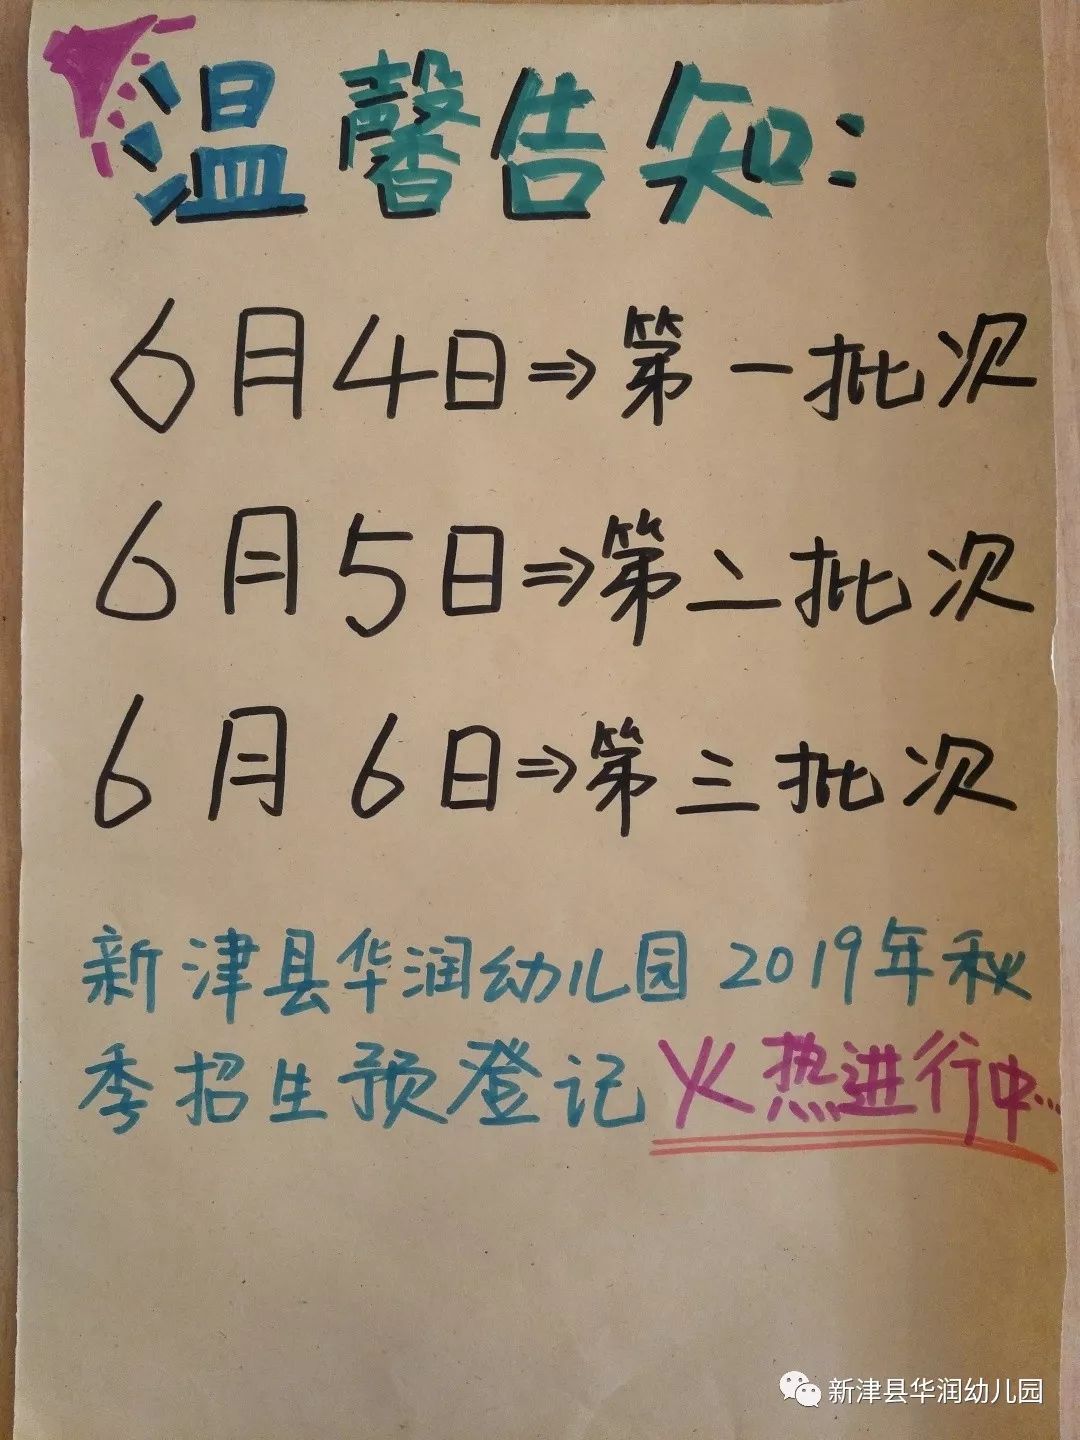 温馨告知:
6月4日⇒第一批次
6月5日⇒第二批次
6月6日⇒第三批次
新津县华润幼儿园2019年秋
季招生预登记火热进行中...
新津县华润幼儿园